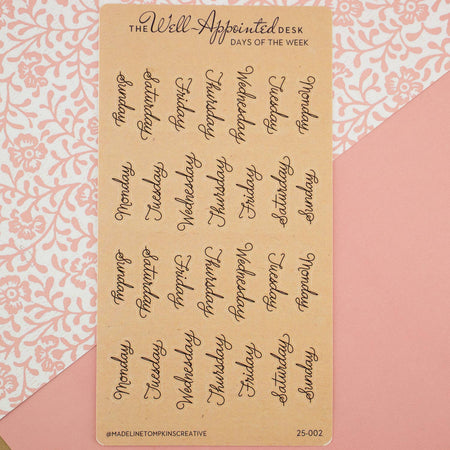 THE Well-Appointed DESK
DAYS OF THE WEEK
Sunday
Saturday
Friday
Thursday
Wednesday
Tuesday
Monday
Monday
Tuesday
Wednesday
Thursday
Friday
Saturday
Sunday
Sunday
Saturday
Friday
Thursday
Wednesday
Tuesday
Monday
Monday
Tuesday
Wednesday
Thursday
Friday
Saturday
Sunday
@MADELINETOMPKINSCREATIVE
25-002